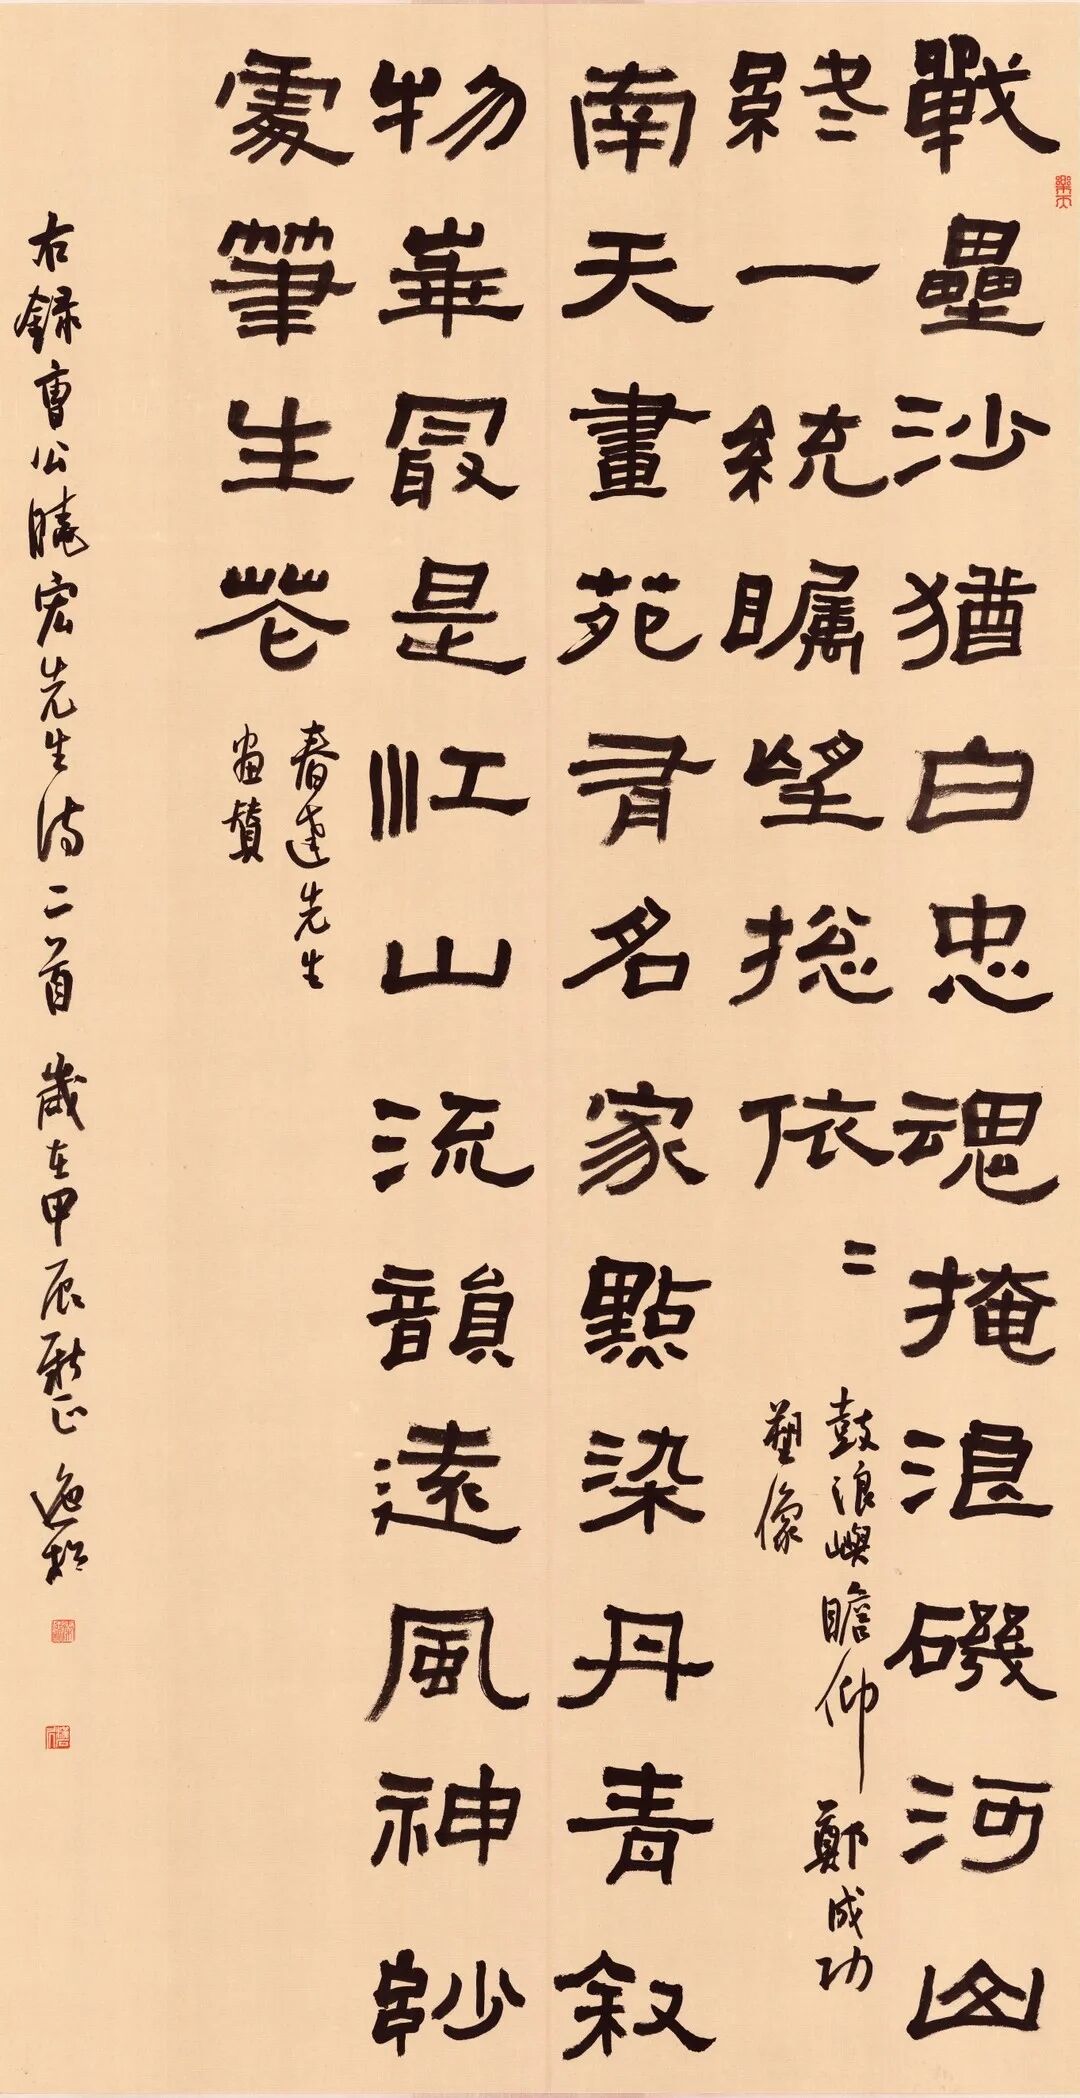 戰壘沙猶白忠魂掩浪磯河山
終一統瞩望捴依〻
鼓浪嶼瞻仰鄭成功
塑像
南天畫苑有名家點染丹青叙
物華最是江山流韻遠風神妙
處筆生花
春達先生
畫贊
右錄曹公曉宏先生詩二首 歲在甲辰 逸松
樂天